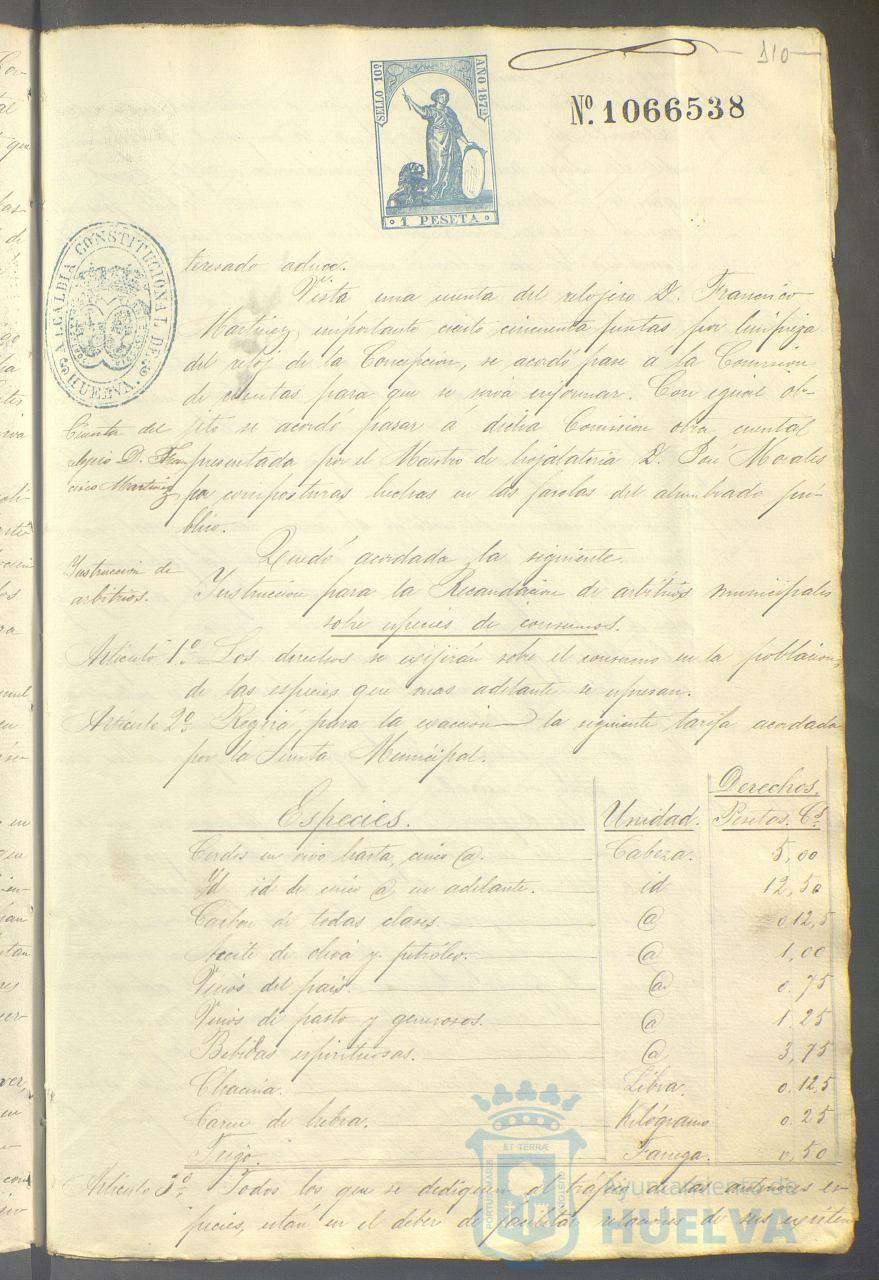 110
SELLO 10º AÑO 1872
1 PESETA
Nº. 1066538
ALCALDIA CONSTITUCIONAL DE HUELVA
teresado aduce.
Vista una cuenta del relojero D. Francisco
Martinez importante ciento cincuenta pesetas por limpieza
del reloj de la Concepcion, se acordó pase á la Comision
de cuentas para que se sirva informar. Con igual ob-
Cuenta del
relojero D. Fran
cisco Martinez
jeto se acordó pasar á dicha Comision otra cuenta
presentada por el Maestro de hojalateria D. José Morales
por composturas hechas en las farolas del alumbrado pú-
blico.
Quedó acordada la siguiente
Instruccion de
arbitrios.
Instruccion para la Recaudacion de arbitrios municipales
sobre especies de consumos.
Artículo 1º. Los derechos se exijirán sobre el consumo en la poblacion,
de las especies que mas adelante se espresan.
Artículo 2º. Regirá para la exaccion la siguiente tarifa acordada
por la Junta Municipal.
Derechos.
Especies. Unidad. Pesetas. Cs.
Cerdos en vivo hasta cinco @. Cabeza. 5,00
Id id de cinco @ en adelante. id 12,50
Carbon de todas clases. @ 0.12,5
Aceite de oliva y petróleo. @ 1,00
Vinos del pais. @ 0.75
Vinos de pasto y generosos. @ 1.25
Bebidas espirituosas. @ 3,75
Chacina. Libra. 0.12,5
Carne de hebra. Kilógramo 0.25
Trigo. Fanega. 0,50
Artículo 3º. Todos los que se dediquen al tráfico de las anteriores es-
pecies, están en el deber de facilitar relaciones de sus existen
Ayuntamiento de
HUELVA